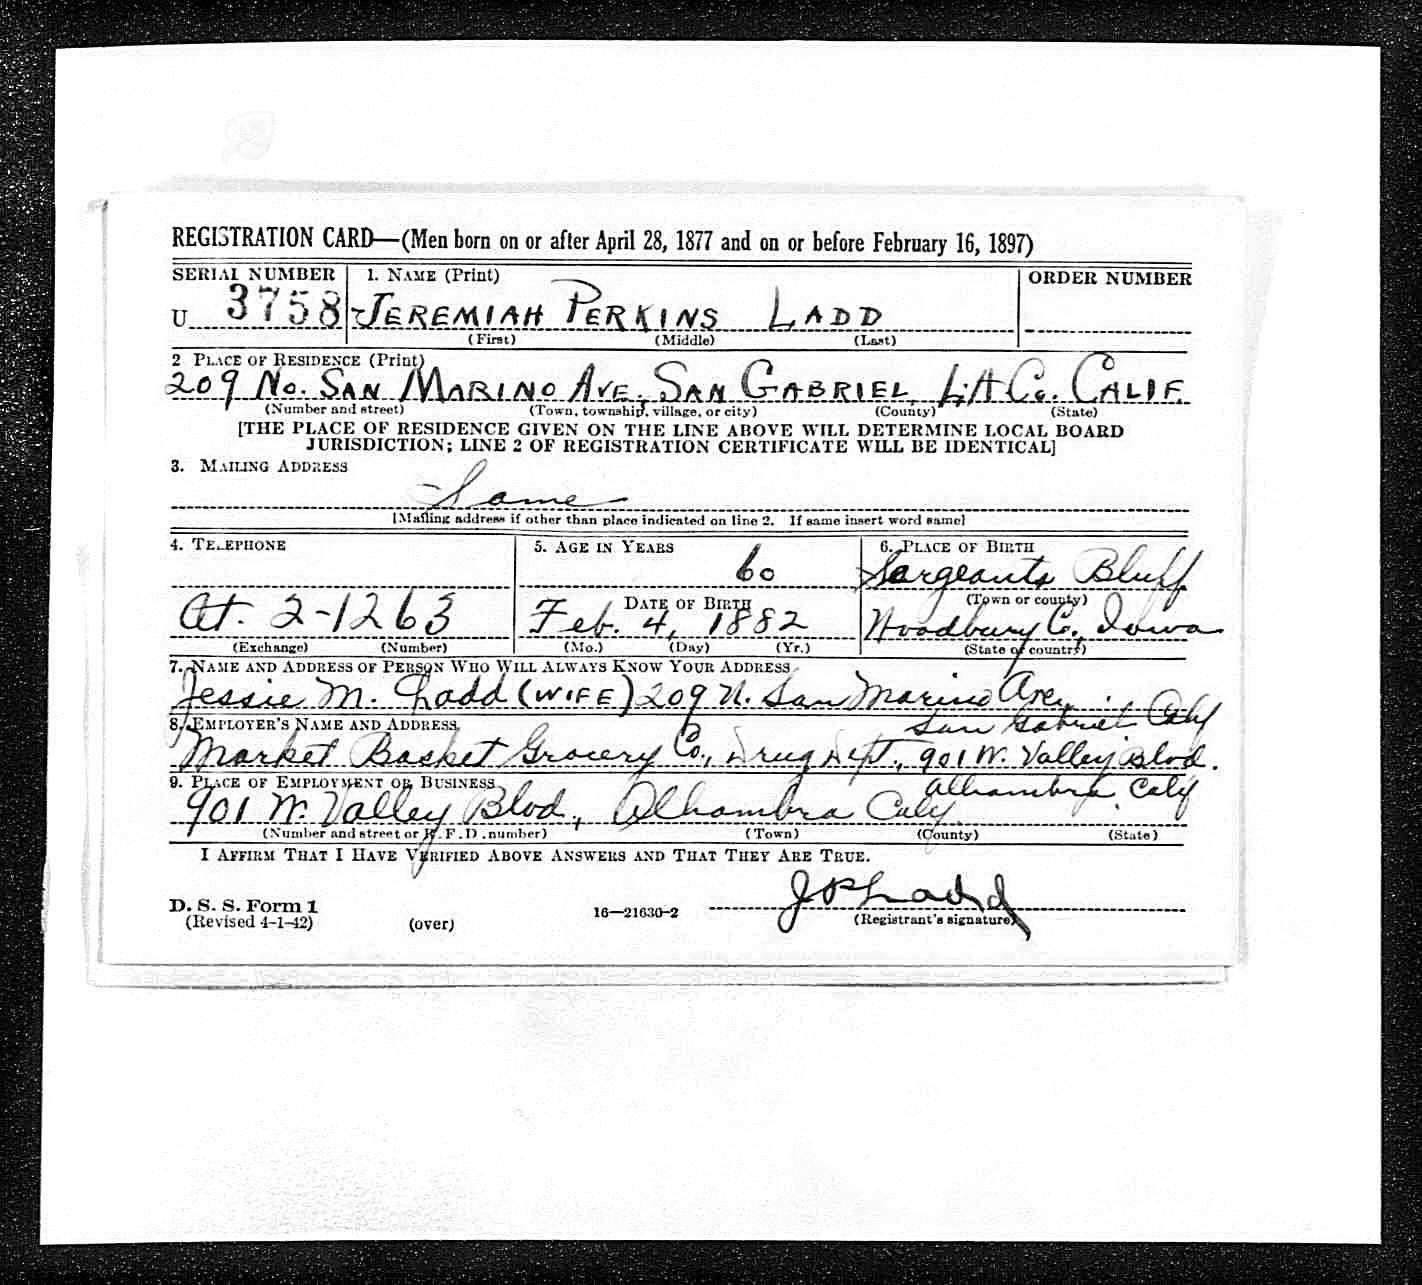 REGISTRATION CARD—(Men born on or after April 28, 1877 and on or before February 16, 1897)
SERIAL NUMBER 1. NAME (Print) ORDER NUMBER
U 3758 JEREMIAH PERKINS LADD
(First) (Middle) (Last)
2 PLACE OF RESIDENCE (Print)
209 No. SAN MARINO AVE, SAN GABRIEL, L.A Co. CALIF.
(Number and street) (Town, township, village, or city) (County) (State)
[THE PLACE OF RESIDENCE GIVEN ON THE LINE ABOVE WILL DETERMINE LOCAL BOARD
JURISDICTION; LINE 2 OF REGISTRATION CERTIFICATE WILL BE IDENTICAL]
3. MAILING ADDRESS
Same
[Mailing address if other than place indicated on line 2. If same insert word same]
4. TELEPHONE 5. AGE IN YEARS 6. PLACE OF BIRTH
60 Sargeants Bluff
DATE OF BIRTH (Town or county)
At. 2-1263 Feb. 4, 1882 Woodbury Co., Iowa
(Exchange) (Number) (Mo.) (Day) (Yr.) (State or country)
7. NAME AND ADDRESS OF PERSON WHO WILL ALWAYS KNOW YOUR ADDRESS
Jessie M. Ladd (WIFE) 209 N. San Marino Ave,
San Gabriel Calif
8. EMPLOYER'S NAME AND ADDRESS
Market Basket Grocery Co., Drug Dept., 901 W. Valley Blvd.
Alhambra, Calif
9. PLACE OF EMPLOYMENT OR BUSINESS
901 W. Valley Blvd, Alhambra Calif.
(Number and street or R. F. D. number) (Town) (County) (State)
I AFFIRM THAT I HAVE VERIFIED ABOVE ANSWERS AND THAT THEY ARE TRUE.
J P Ladd
D. S. S. Form 1
(Revised 4-1-42) (over) 16—21630-2 (Registrant's signature)